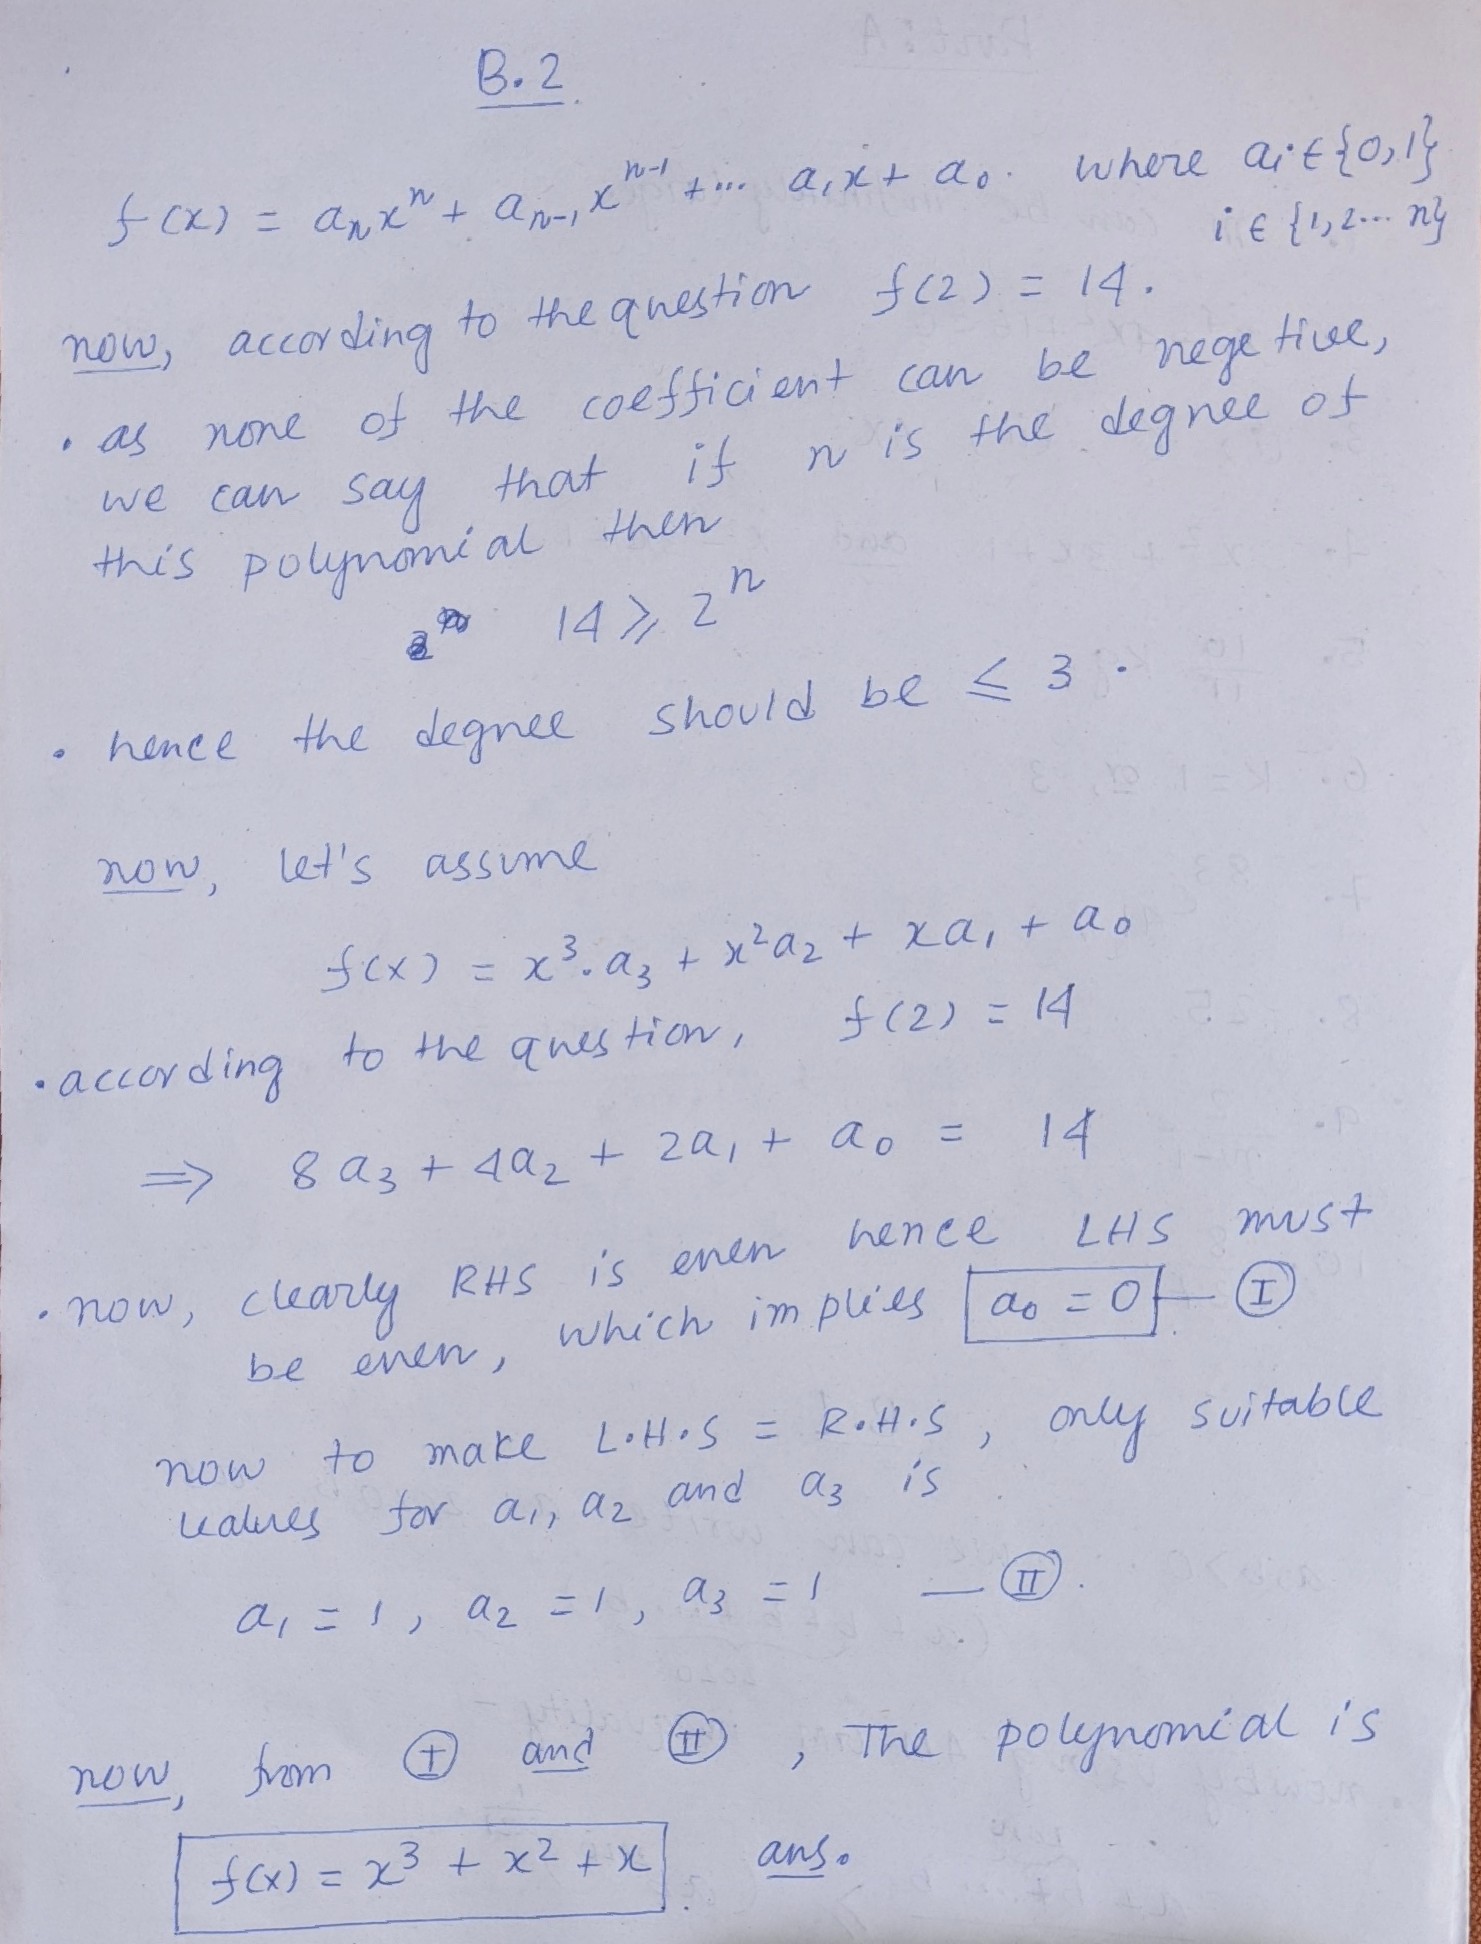 B.2
f(x) = aₙxⁿ + aₙ₋₁xⁿ⁻¹ + ... a₁x + a₀. where aᵢ ∈ {0,1}
i ∈ {1,2... n}
now, according to the question f(2) = 14.
• as none of the coefficient can be negetive,
we can say that if n is the degree of
this polynomial then
14 ⩾ 2ⁿ
• hence the degree should be ≤ 3.
now, let's assume
f(x) = x³.a₃ + x²a₂ + xa₁ + a₀
• according to the question, f(2) = 14
⇒ 8a₃ + 4a₂ + 2a₁ + a₀ = 14
• now, clearly RHS is even hence LHS must
be even, which implies a₀ = 0 — Ⅰ
now to make L.H.S = R.H.S, only suitable
values for a₁, a₂ and a₃ is
a₁ = 1, a₂ = 1, a₃ = 1 — Ⅱ.
now, from Ⅰ and Ⅱ, The polynomial is
f(x) = x³ + x² + x ans.